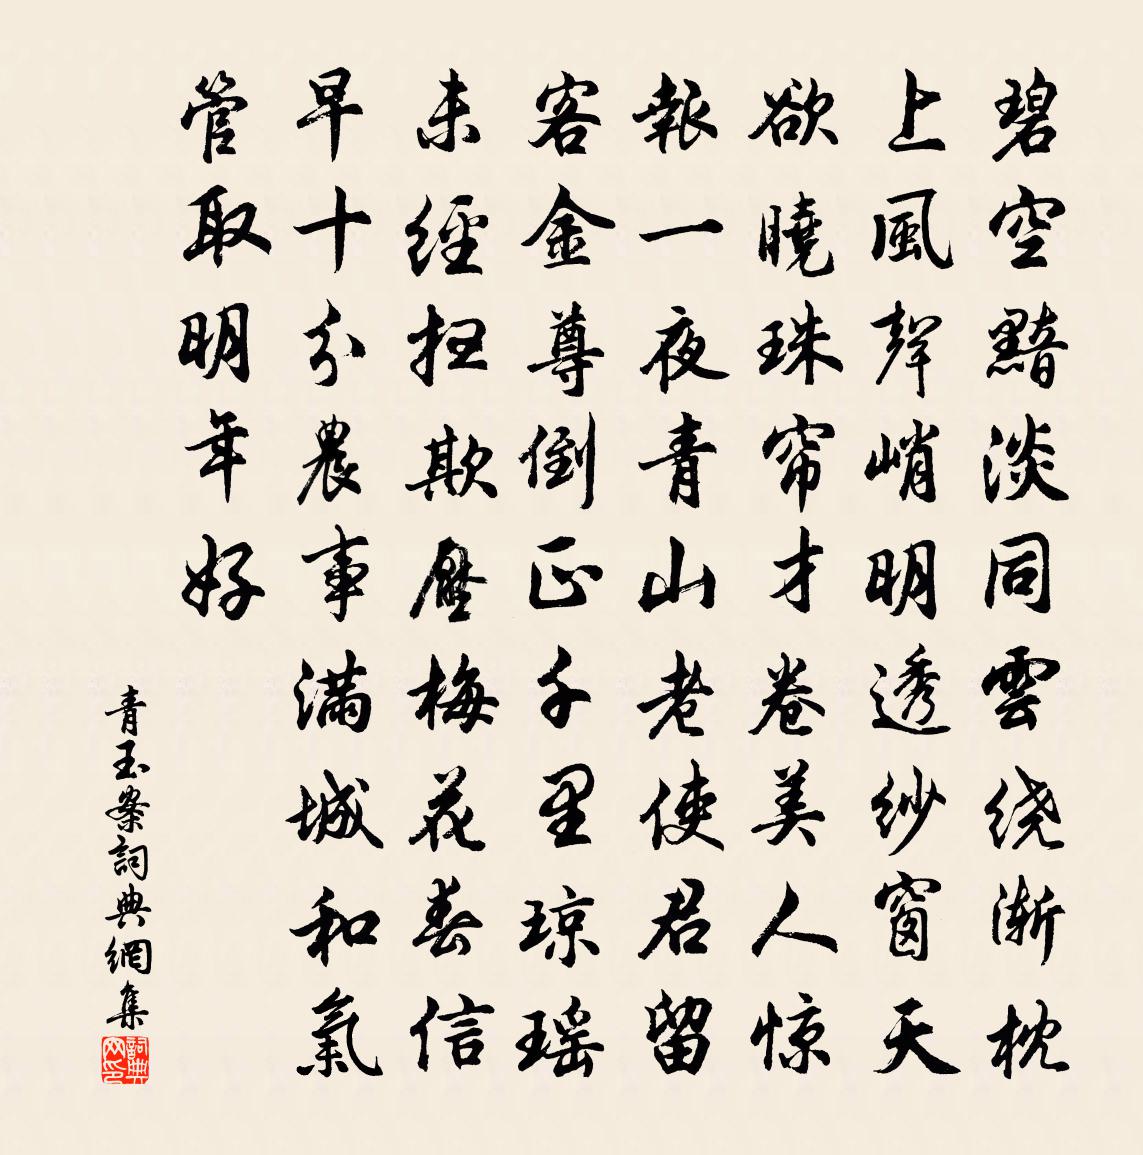 碧空黯淡同雲绕渐枕
上風聲峭明透紗窗天
欲曉珠帘才卷美人惊
報一夜青山老使君留
客金尊倒正千里琼瑶
未經扫欺壓梅花春信
早十分農事滿城和氣
管取明年好
青玉案詞典網集